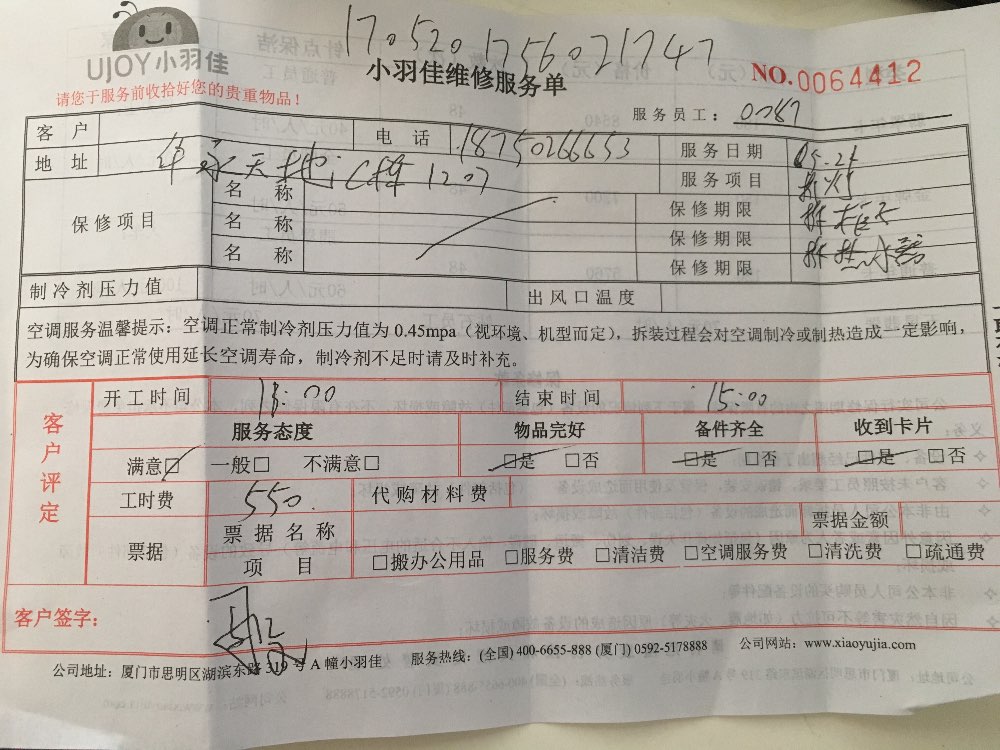 1705201756021747
UJOY小羽佳
小羽佳维修服务单
NO.0064412
请您于服务前收拾好您的贵重物品！
服务员工：0087
客 户 电 话 18750266653 服务日期 05.21
地 址 天地C栋1207 服务项目 拆灯
保修项目
名 称 保修期限 拆柜子
名 称 保修期限 拆热水器
名 称 保修期限
制冷剂压力值 出风口温度
空调服务温馨提示：空调正常制冷剂压力值为 0.45mpa（视环境、机型而定），拆装过程会对空调制冷或制热造成一定影响，
为确保空调正常使用延长空调寿命，制冷剂不足时请及时补充。
客户评定
开工时间 13:00 结束时间 15:00
服务态度 物品完好 备件齐全 收到卡片
满意□ 一般□ 不满意□ □是 □否 □是 □否 □是 □否
工时费 550 代购材料费
票据 票据名称 票据金额
项 目 □搬办公用品 □服务费 □清洁费 □空调服务费 □清洗费 □疏通费
客户签字：
公司地址：厦门市思明区湖滨东路 319 号 A 幢小羽佳 服务热线：(全国) 400-6655-888 (厦门) 0592-5178888 公司网站：www.xiaoyujia.com